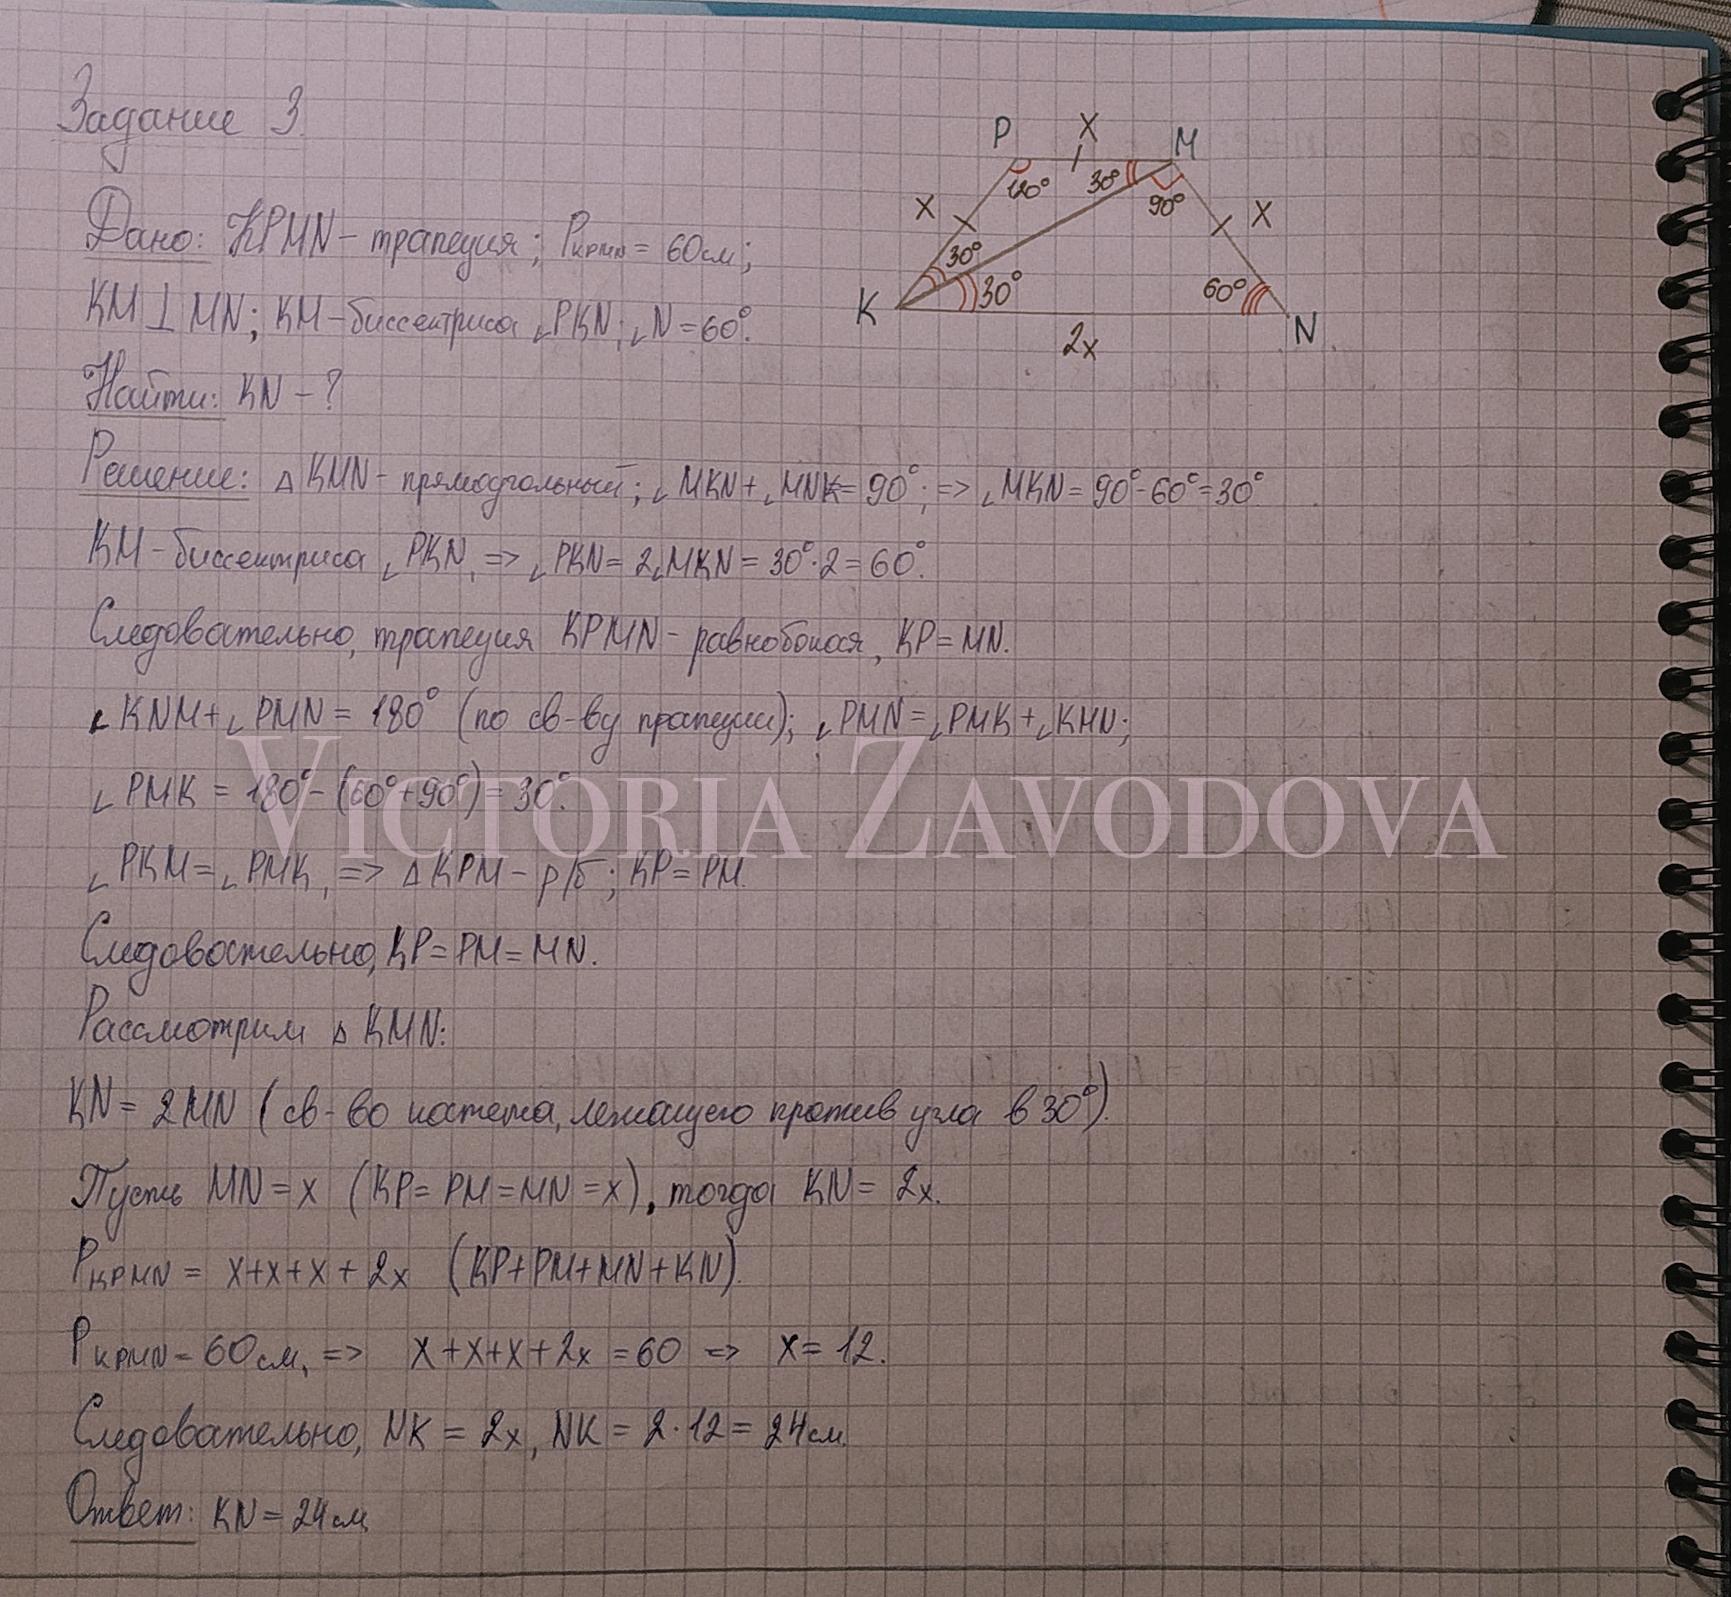 Задание 3.
P X M
120° 30° 90°
X X
30°
K 30° 60° N
2x
Дано: KPMN - трапеция; P_KPMN = 60 см;
KM ⊥ MN; KM - биссектриса ∠PKN; ∠N = 60°.
Найти: KN - ?
Решение: △KMN - прямоугольный; ∠MKN + ∠MNK = 90°; => ∠MKN = 90° - 60° = 30°
KM - биссектриса ∠PKN, => ∠PKN = 2∠MKN = 30°·2 = 60°.
Следовательно, трапеция KPMN - равнобокая, KP = MN.
∠KNM + ∠PMN = 180° (по св-ву трапеции); ∠PMN = ∠PMK + ∠KMN;
∠PMK = 180° - (60° + 90°) = 30°.
VICTORIA ZAVODOVA
∠PKM = ∠PMK, => △KPM - р/б; KP = PM.
Следовательно, KP = PM = MN.
Рассмотрим △KMN:
KN = 2MN (св-во катета, лежащего против угла в 30°).
Пусть MN = x (KP = PM = MN = x), тогда KN = 2x.
P_KPMN = x+x+x+2x (KP+PM+MN+KN).
P_KPMN = 60 см, => x+x+x+2x = 60 => x = 12.
Следовательно, NK = 2x, NK = 2·12 = 24 см.
Ответ: KN = 24 см